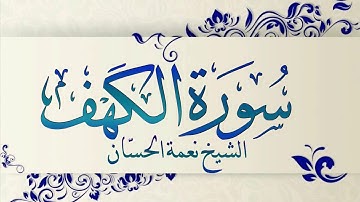 سُورَة الكَهف
الشيخ نعمة الحسّان